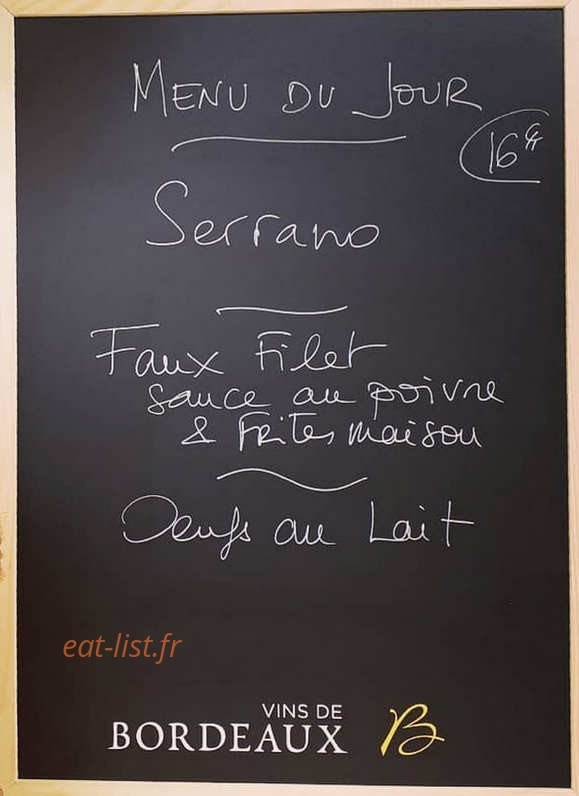 MENU DU JOUR
16€
Serrano
Faux Filet
sauce au poivre
& Frites maison
Oeufs au Lait
eat-list.fr
VINS DE
BORDEAUX B